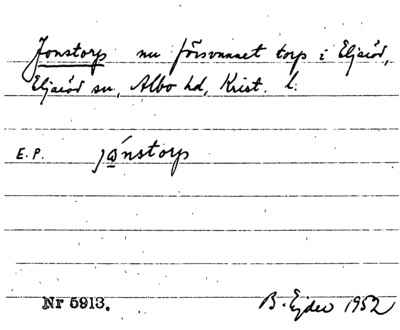 Jonstorp nu försvunnet torp i Eljaröd,
Eljaröd sn, Albo hd, Krist. l.
E.P. jónstorp
Nr 5913. B. Ejder 1952